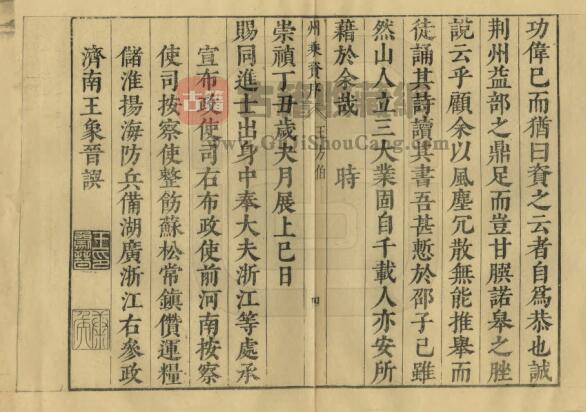 功偉已而猶曰資之云者自爲恭也誠
荆州益部之鼎足而豈甘臊諾皋之脞
說云乎顧余以風塵冗散無能推舉而
徒誦其詩讀其書吾甚慙於邵子已雖
然山人立三大業固自千載人亦安所
藉於余哉 時
州乘資序 王方伯 四
崇禎丁丑歲夫月展上巳日
賜同進士出身中奉大夫浙江等處承
宣布政使司右布政使前河南按察
使司按察使整飭蘇松常鎮儹運糧
儲淮揚海防兵備湖廣浙江右參政
濟南王象晉譔
www.GujiShouCang.com